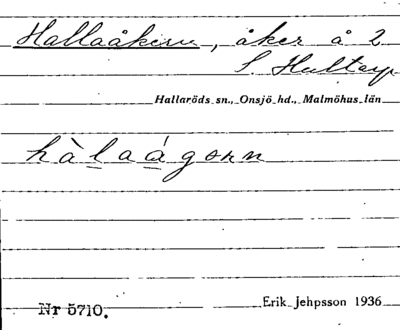 Hallaåkern, åker å 2
S. Hultarp
Hallaröds sn., Onsjö hd., Malmöhus län
hàlaágonn
Nr 5710.
Erik Jehpsson 1936